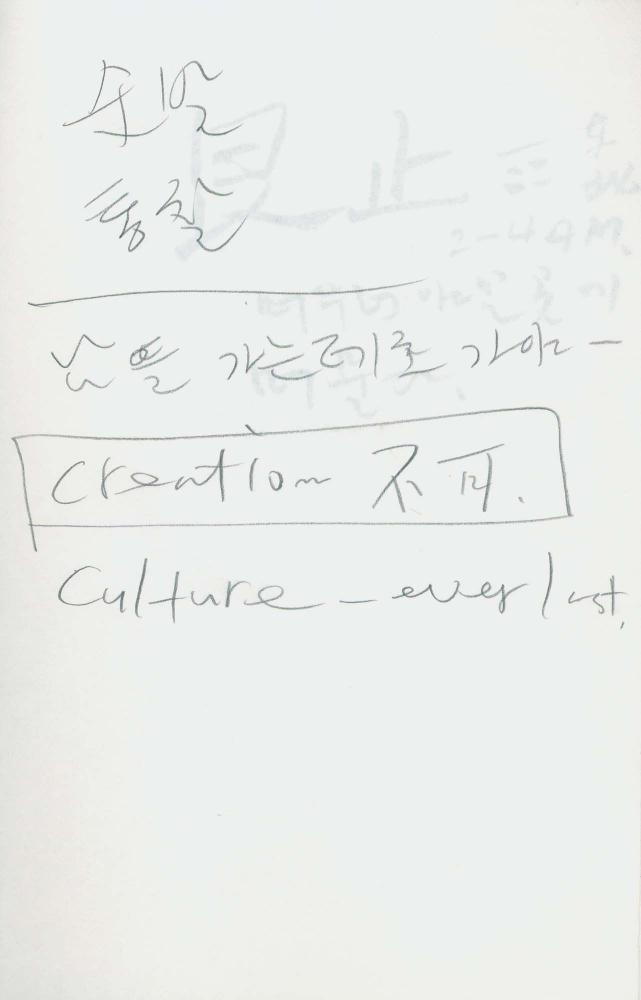 통찰
남들 가는데로 가야-
Creation 不可.
Culture - everlast,